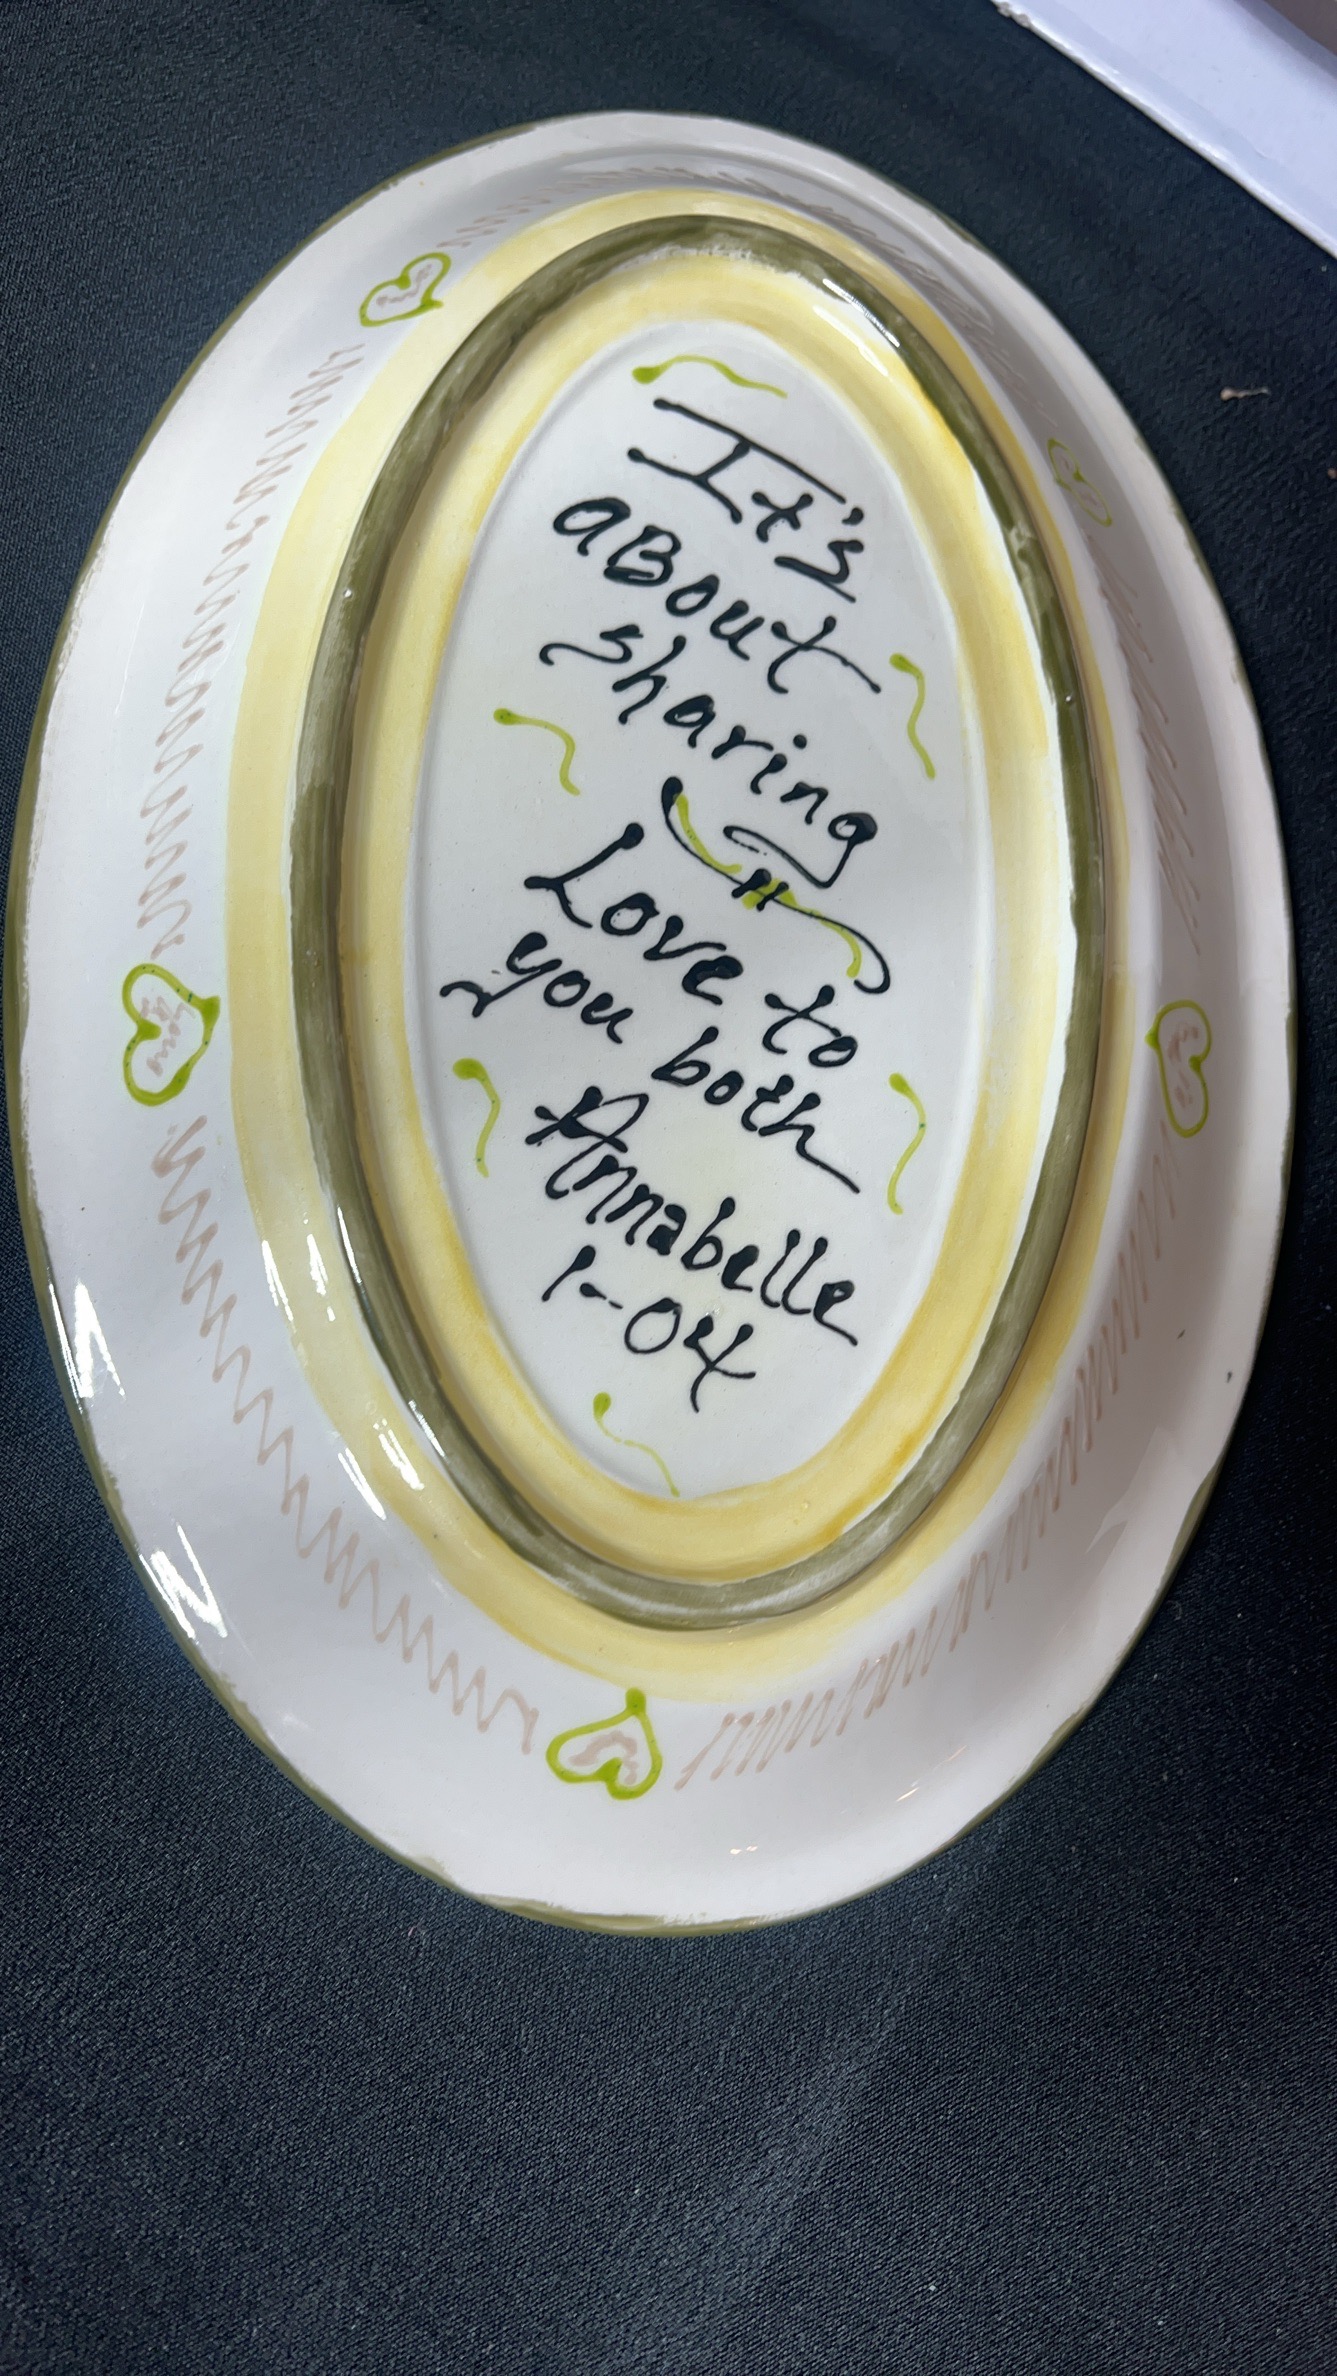 It's
aBout
sharing
Love to
you both
Annabelle
1-04